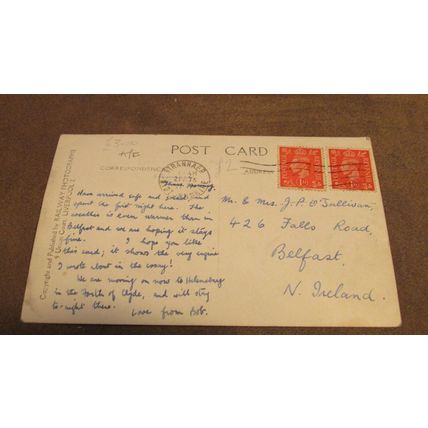 £3.00
A/F
POST CARD
CORRESPONDENCE
ADDRESS
STRANRAER
Copyright and Published by RAILWAY PHOTOGRAPHS
Union Court, LIVERPOOL 2
Have arrived safe and sound and
spent the first night here. The
weather is even warmer than in
Belfast and we are hoping it stays
fine. I hope you like
this card; it shows the very engine
I wrote about in the essay!
We are moving on now to Helensburgh
in the Firth of Clyde, and will stay
to-night there. Love from Bob.
Mr. & Mrs. J.P. O'Sullivan,
426 Falls Road,
Belfast,
N. Ireland.